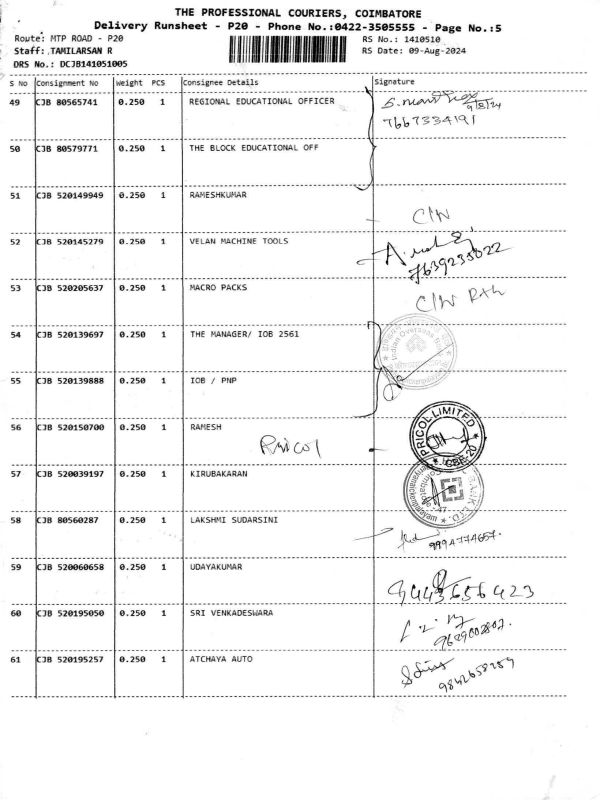 THE PROFESSIONAL COURIERS, COIMBATORE
Delivery Runsheet - P20 - Phone No.:0422-3505555 - Page No.:5
Route: MTP ROAD - P20 RS No.: 1410510
Staff: TAMILARSAN R RS Date: 09-Aug-2024
DRS No.: DCJB141051005
S No Consignment No Weight PCS Consignee Details Signature
49 CJB 80565741 0.250 1 REGIONAL EDUCATIONAL OFFICER
9/8/24
7667334191
50 CJB 80579771 0.250 1 THE BLOCK EDUCATIONAL OFF
51 CJB 520149949 0.250 1 RAMESHKUMAR
C/N
52 CJB 520145279 0.250 1 VELAN MACHINE TOOLS
7639235022
53 CJB 520205637 0.250 1 MACRO PACKS
C/N
54 CJB 520139697 0.250 1 THE MANAGER/ IOB 2561
Indian Overseas
55 CJB 520139888 0.250 1 IOB / PNP
56 CJB 520150700 0.250 1 RAMESH
Pricol
PRICOL LIMITED
CBE-20
57 CJB 520039197 0.250 1 KIRUBAKARAN
58 CJB 80560287 0.250 1 LAKSHMI SUDARSINI
9994774667.
59 CJB 520060658 0.250 1 UDAYAKUMAR
9443656423
60 CJB 520195050 0.250 1 SRI VENKADESWARA
9629002807.
61 CJB 520195257 0.250 1 ATCHAYA AUTO
9842658259